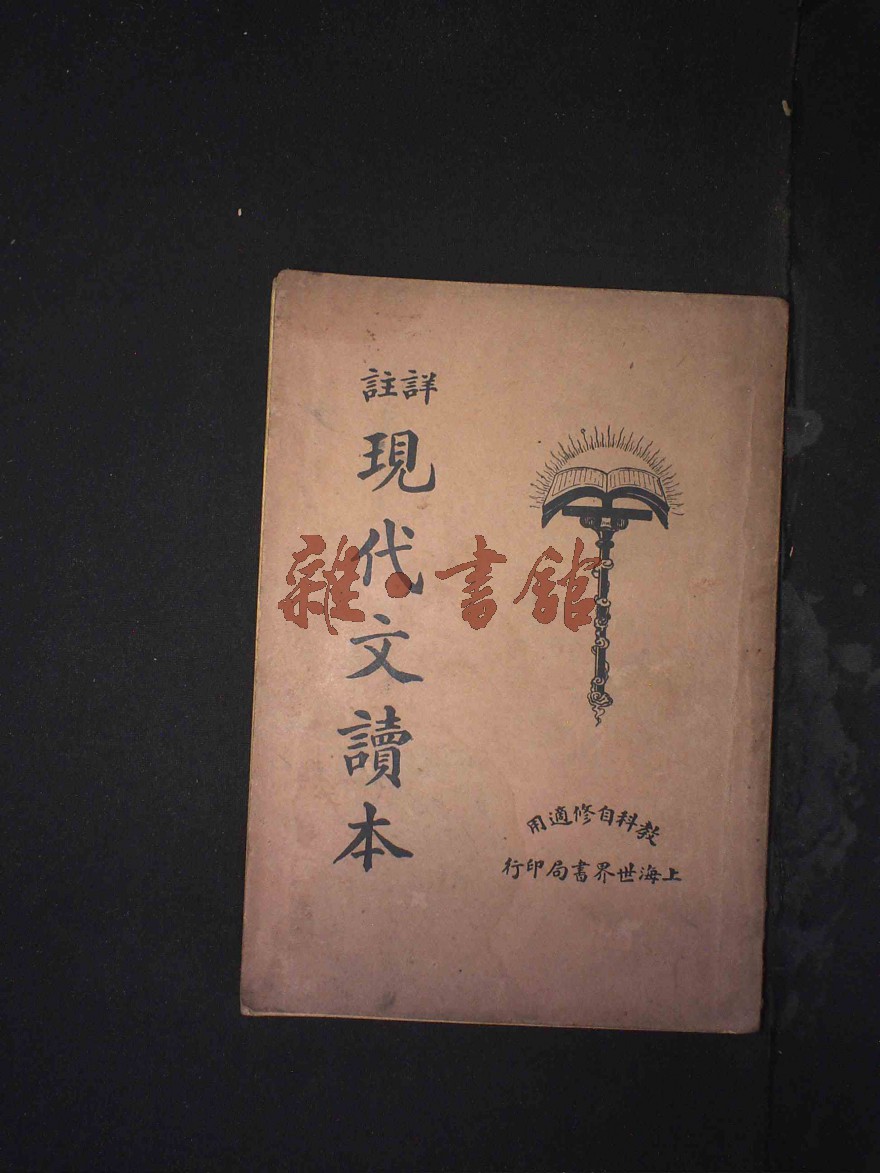 詳註
現代文讀本
雜·書館
教科自修適用
上海世界書局印行